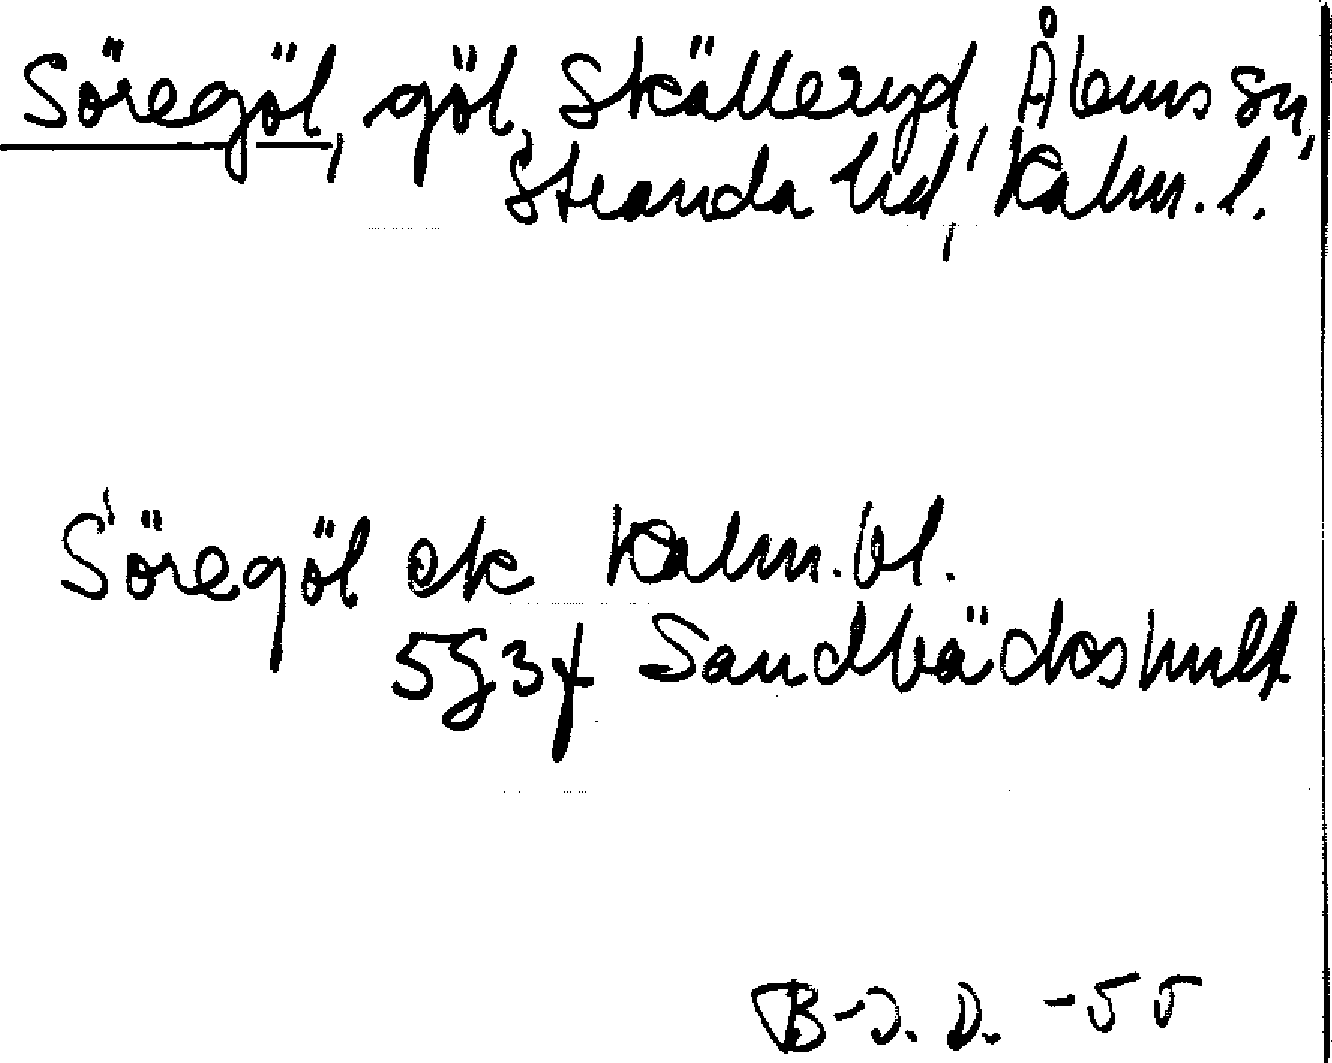 Söregöl, göl, Skälleryd, Ålems sn,
Stranda hd, Kalm. l.
Söregöl ek Kalm. bl.
5g3f Sandbäckshult
B-J. D. -55